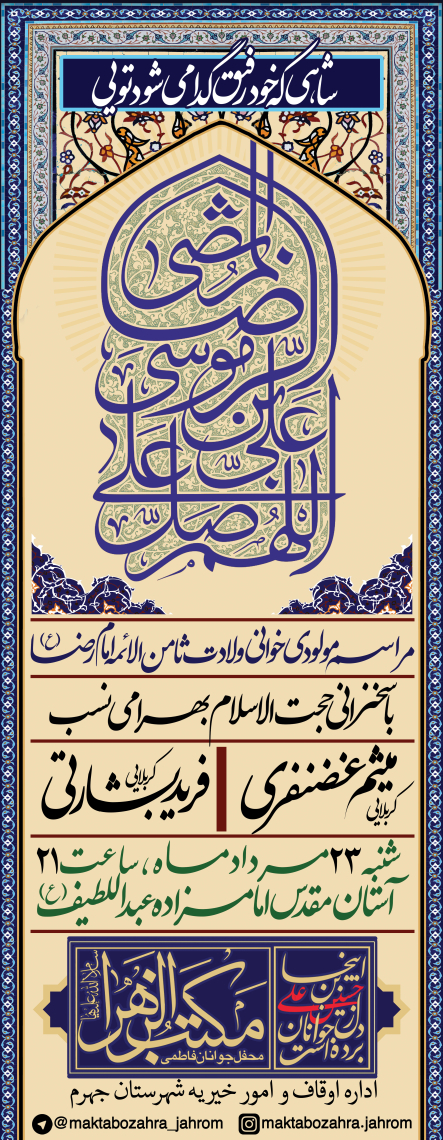 شاهی که خود رفیق گدا می شود تویی
اللهم صل علی علی بن موسی الرضا المرتضی
مراسم مولودی خوانی ولادت ثامن الائمه امام رضا (ع)
با سخنرانی حجت الاسلام بهرامی نسب
کربلایی میثم غضنفری
کربلایی فرید بشارتی
شنبه ۲۳ مرداد ماه ، ساعت ۲۱
آستان مقدس امامزاده عبداللطیف (ع)
اینجا حسین ابن علی
از دل جوانان برده است
مکتب الزهرا
سلام الله علیها
محفل جوانان فاطمی
اداره اوقاف و امور خیریه شهرستان جهرم
@maktabozahra_jahrom
maktabozahra.jahrom